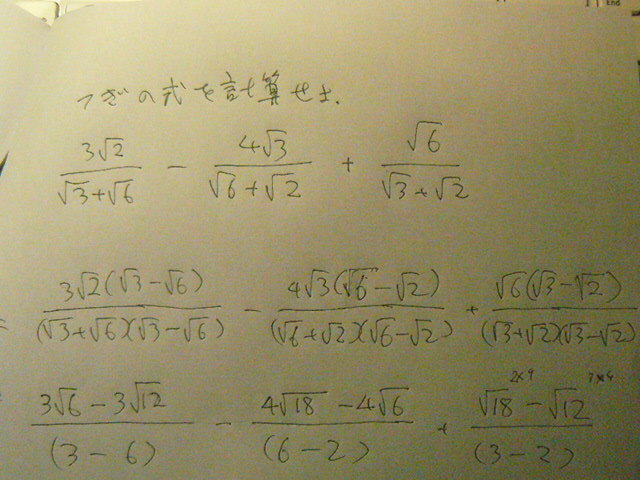 つぎの式を計算せよ.
3√2/(√3+√6) - 4√3/(√6+√2) + √6/(√3+√2)
= 3√2(√3-√6)/(√3+√6)(√3-√6) - 4√3(√6-√2)/(√6+√2)(√6-√2) + √6(√3-√2)/(√3+√2)(√3-√2)
2×9
= (3√6-3√12)/(3-6) - (4√18-4√6)/(6-2) + (√18-√12)/(3-2)